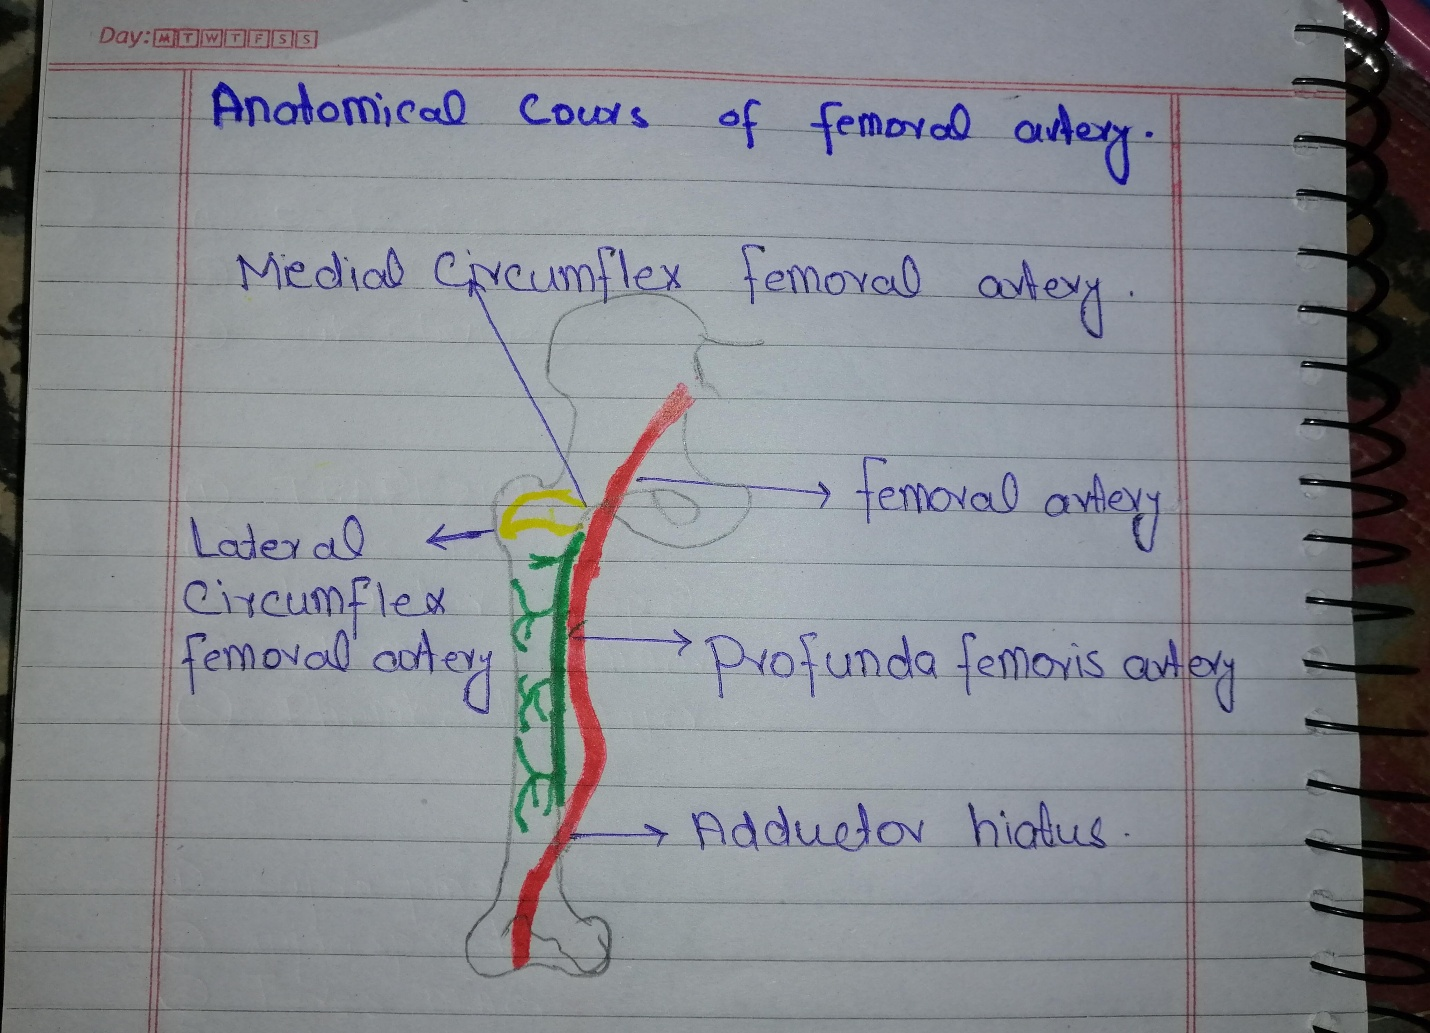 Day: M T W T F S S
Anatomical Cours of femoral artery.
Medial Circumflex femoral artery.
femoral artery
Lateral
Circumflex
femoral artery
Profunda femoris artery
Adductor hiatus.